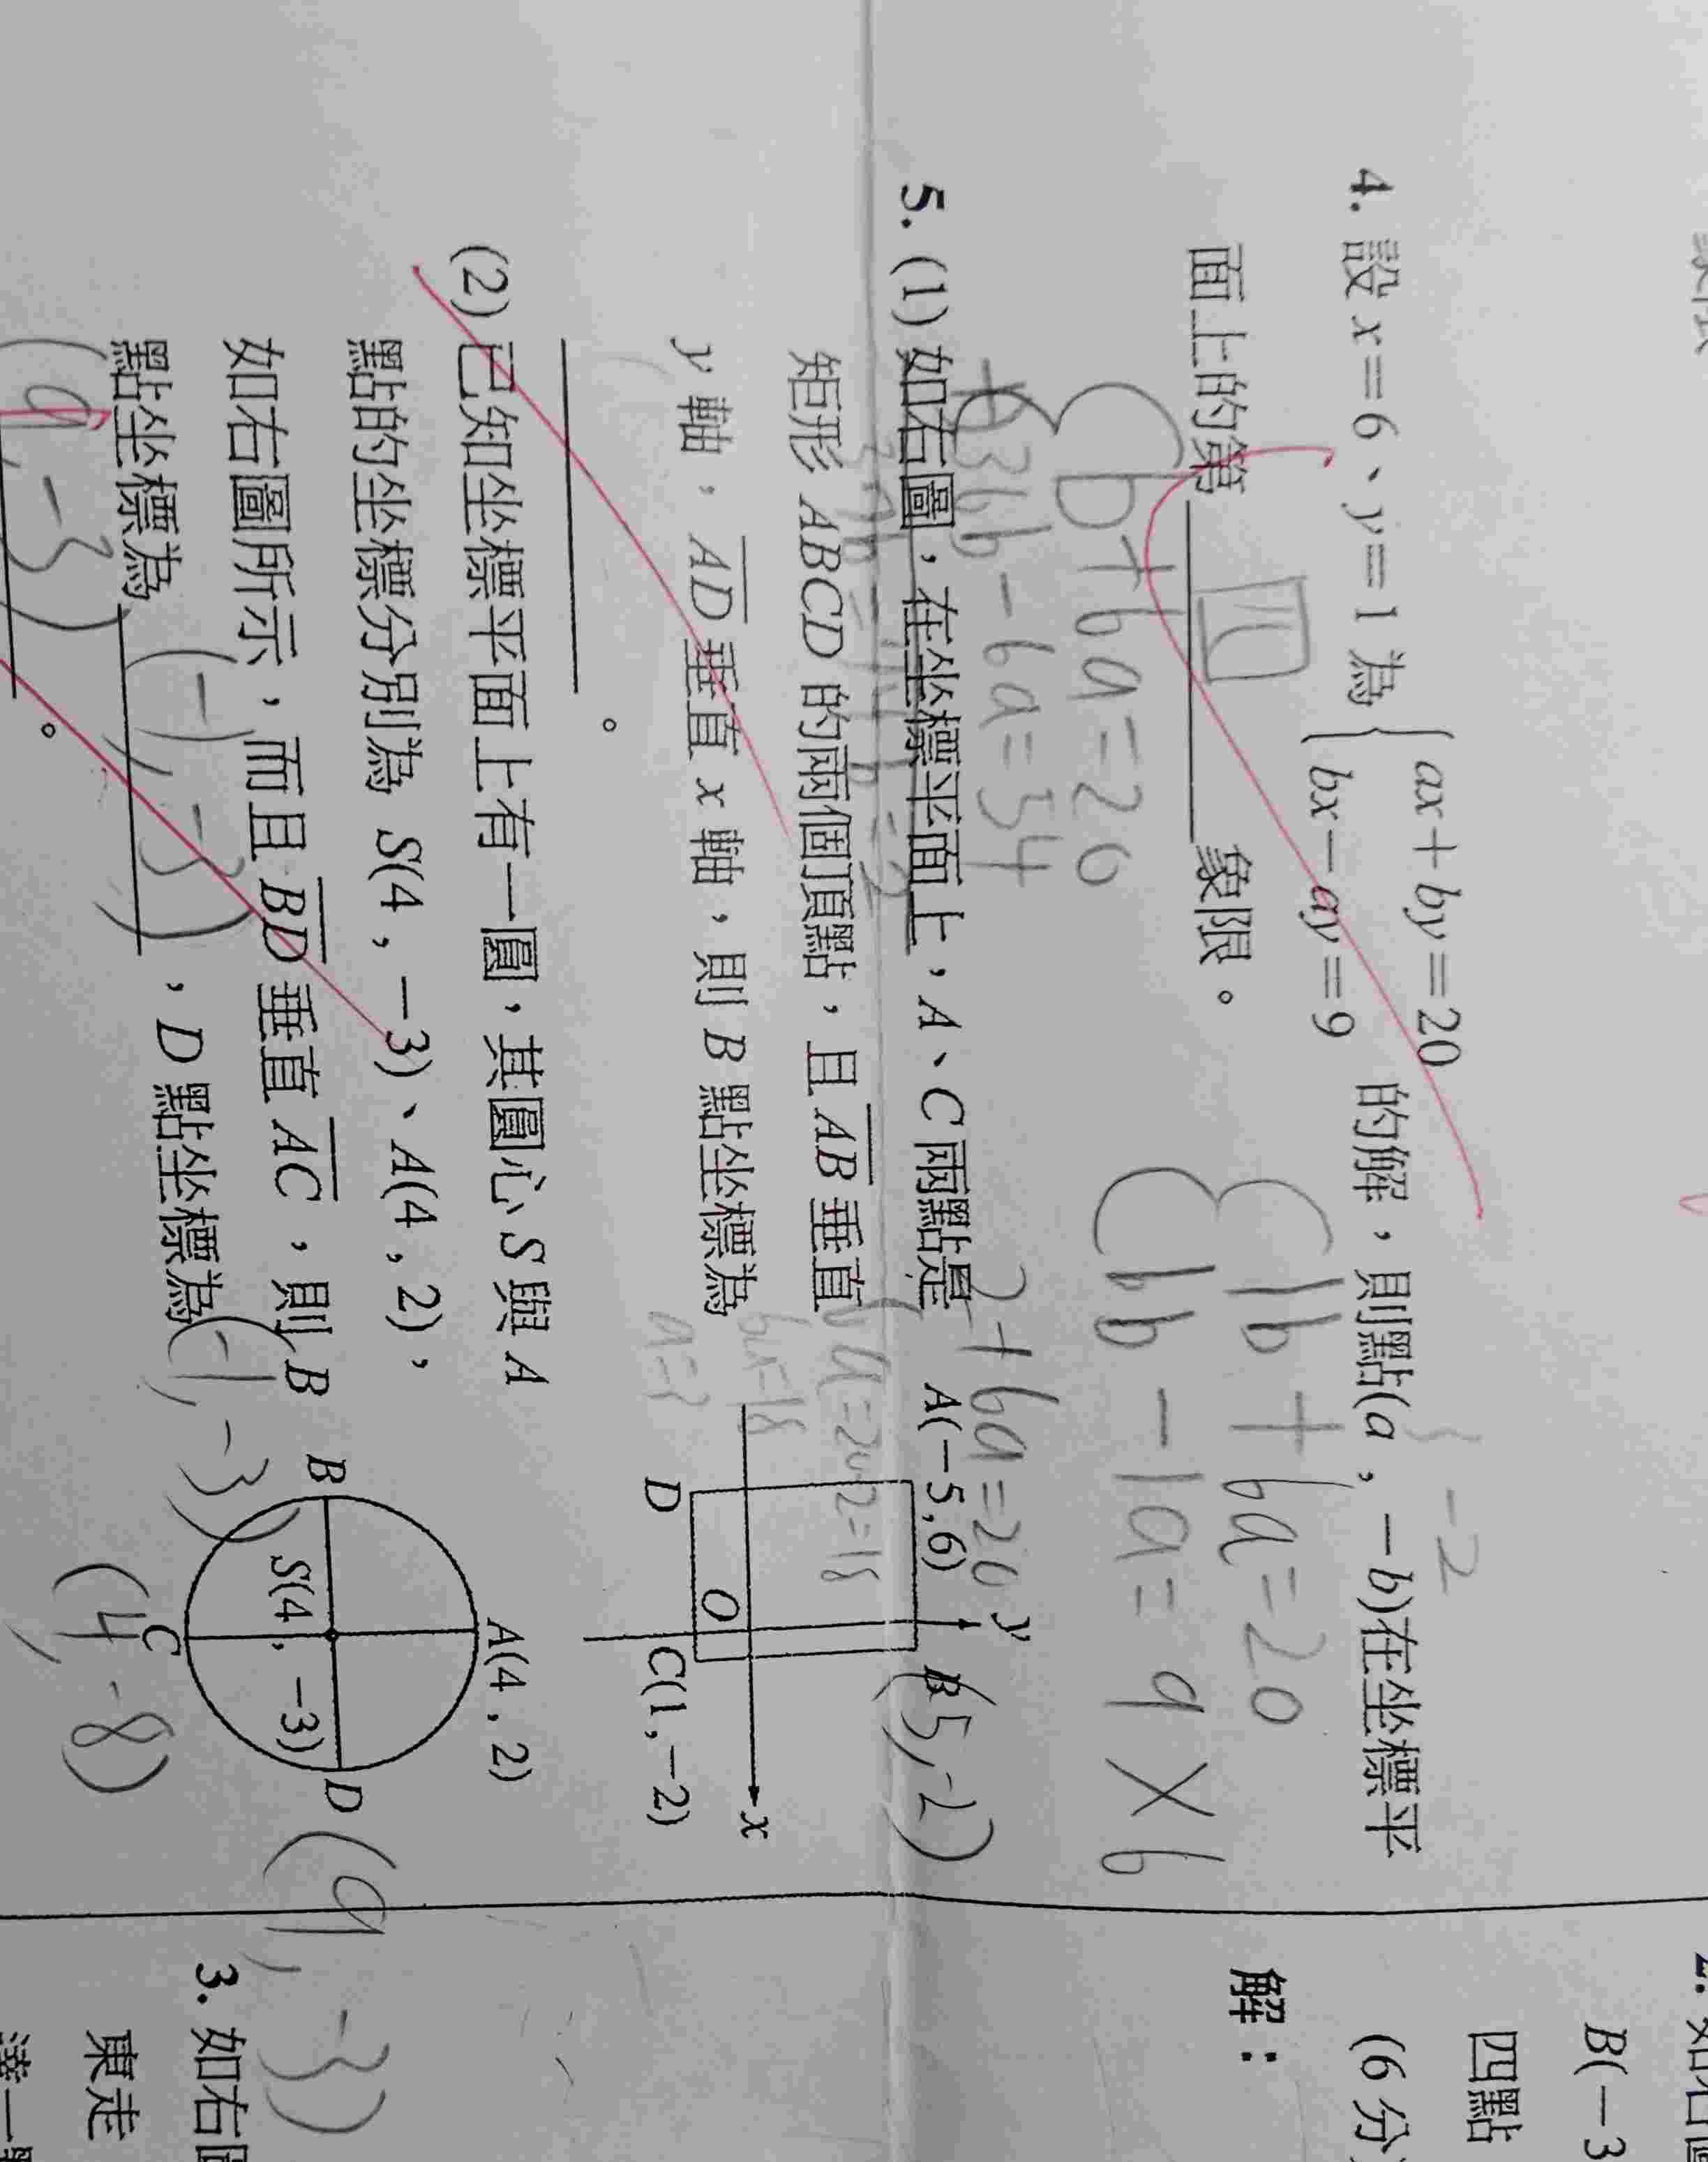 4. 設 x＝6、y＝1 為 { ax＋by＝20
bx－ay＝9 的解，則點(a，－b)在坐標平
面上的第 四 象限。
－2
1b＋6a＝20
6b－1a＝9×6
b＋6a＝20
36b－6a＝54
2＋6a＝20
6a＝20-2＝18
6a＝18
a＝3
5. (1) 如右圖，在坐標平面上，A、C 兩點是
矩形 ABCD 的兩個頂點，且 AB 垂直
y 軸，AD 垂直 x 軸，則 B 點坐標為
。
A(－5,6)
y
B
(5,-2)
D
O
C(1,－2)
x
(2) 已知坐標平面上有一圓，其圓心 S 與 A
點的坐標分別為 S(4，－3)、A(4，2)，
如右圖所示，而且 BD 垂直 AC，則 B
點坐標為 (-1,-3)，D 點坐標為
(9,-3)。
A(4，2)
B
S(4，－3)
D
C
(-1,-3)
(4,-8)
(9,-3)
B(－3
四點
(6 分)
解：
3. 如右
東走